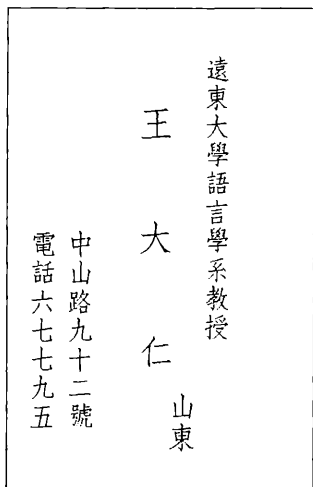 遠東大學語言學系教授
王大仁
山東
中山路九十二號
電話六七七九五